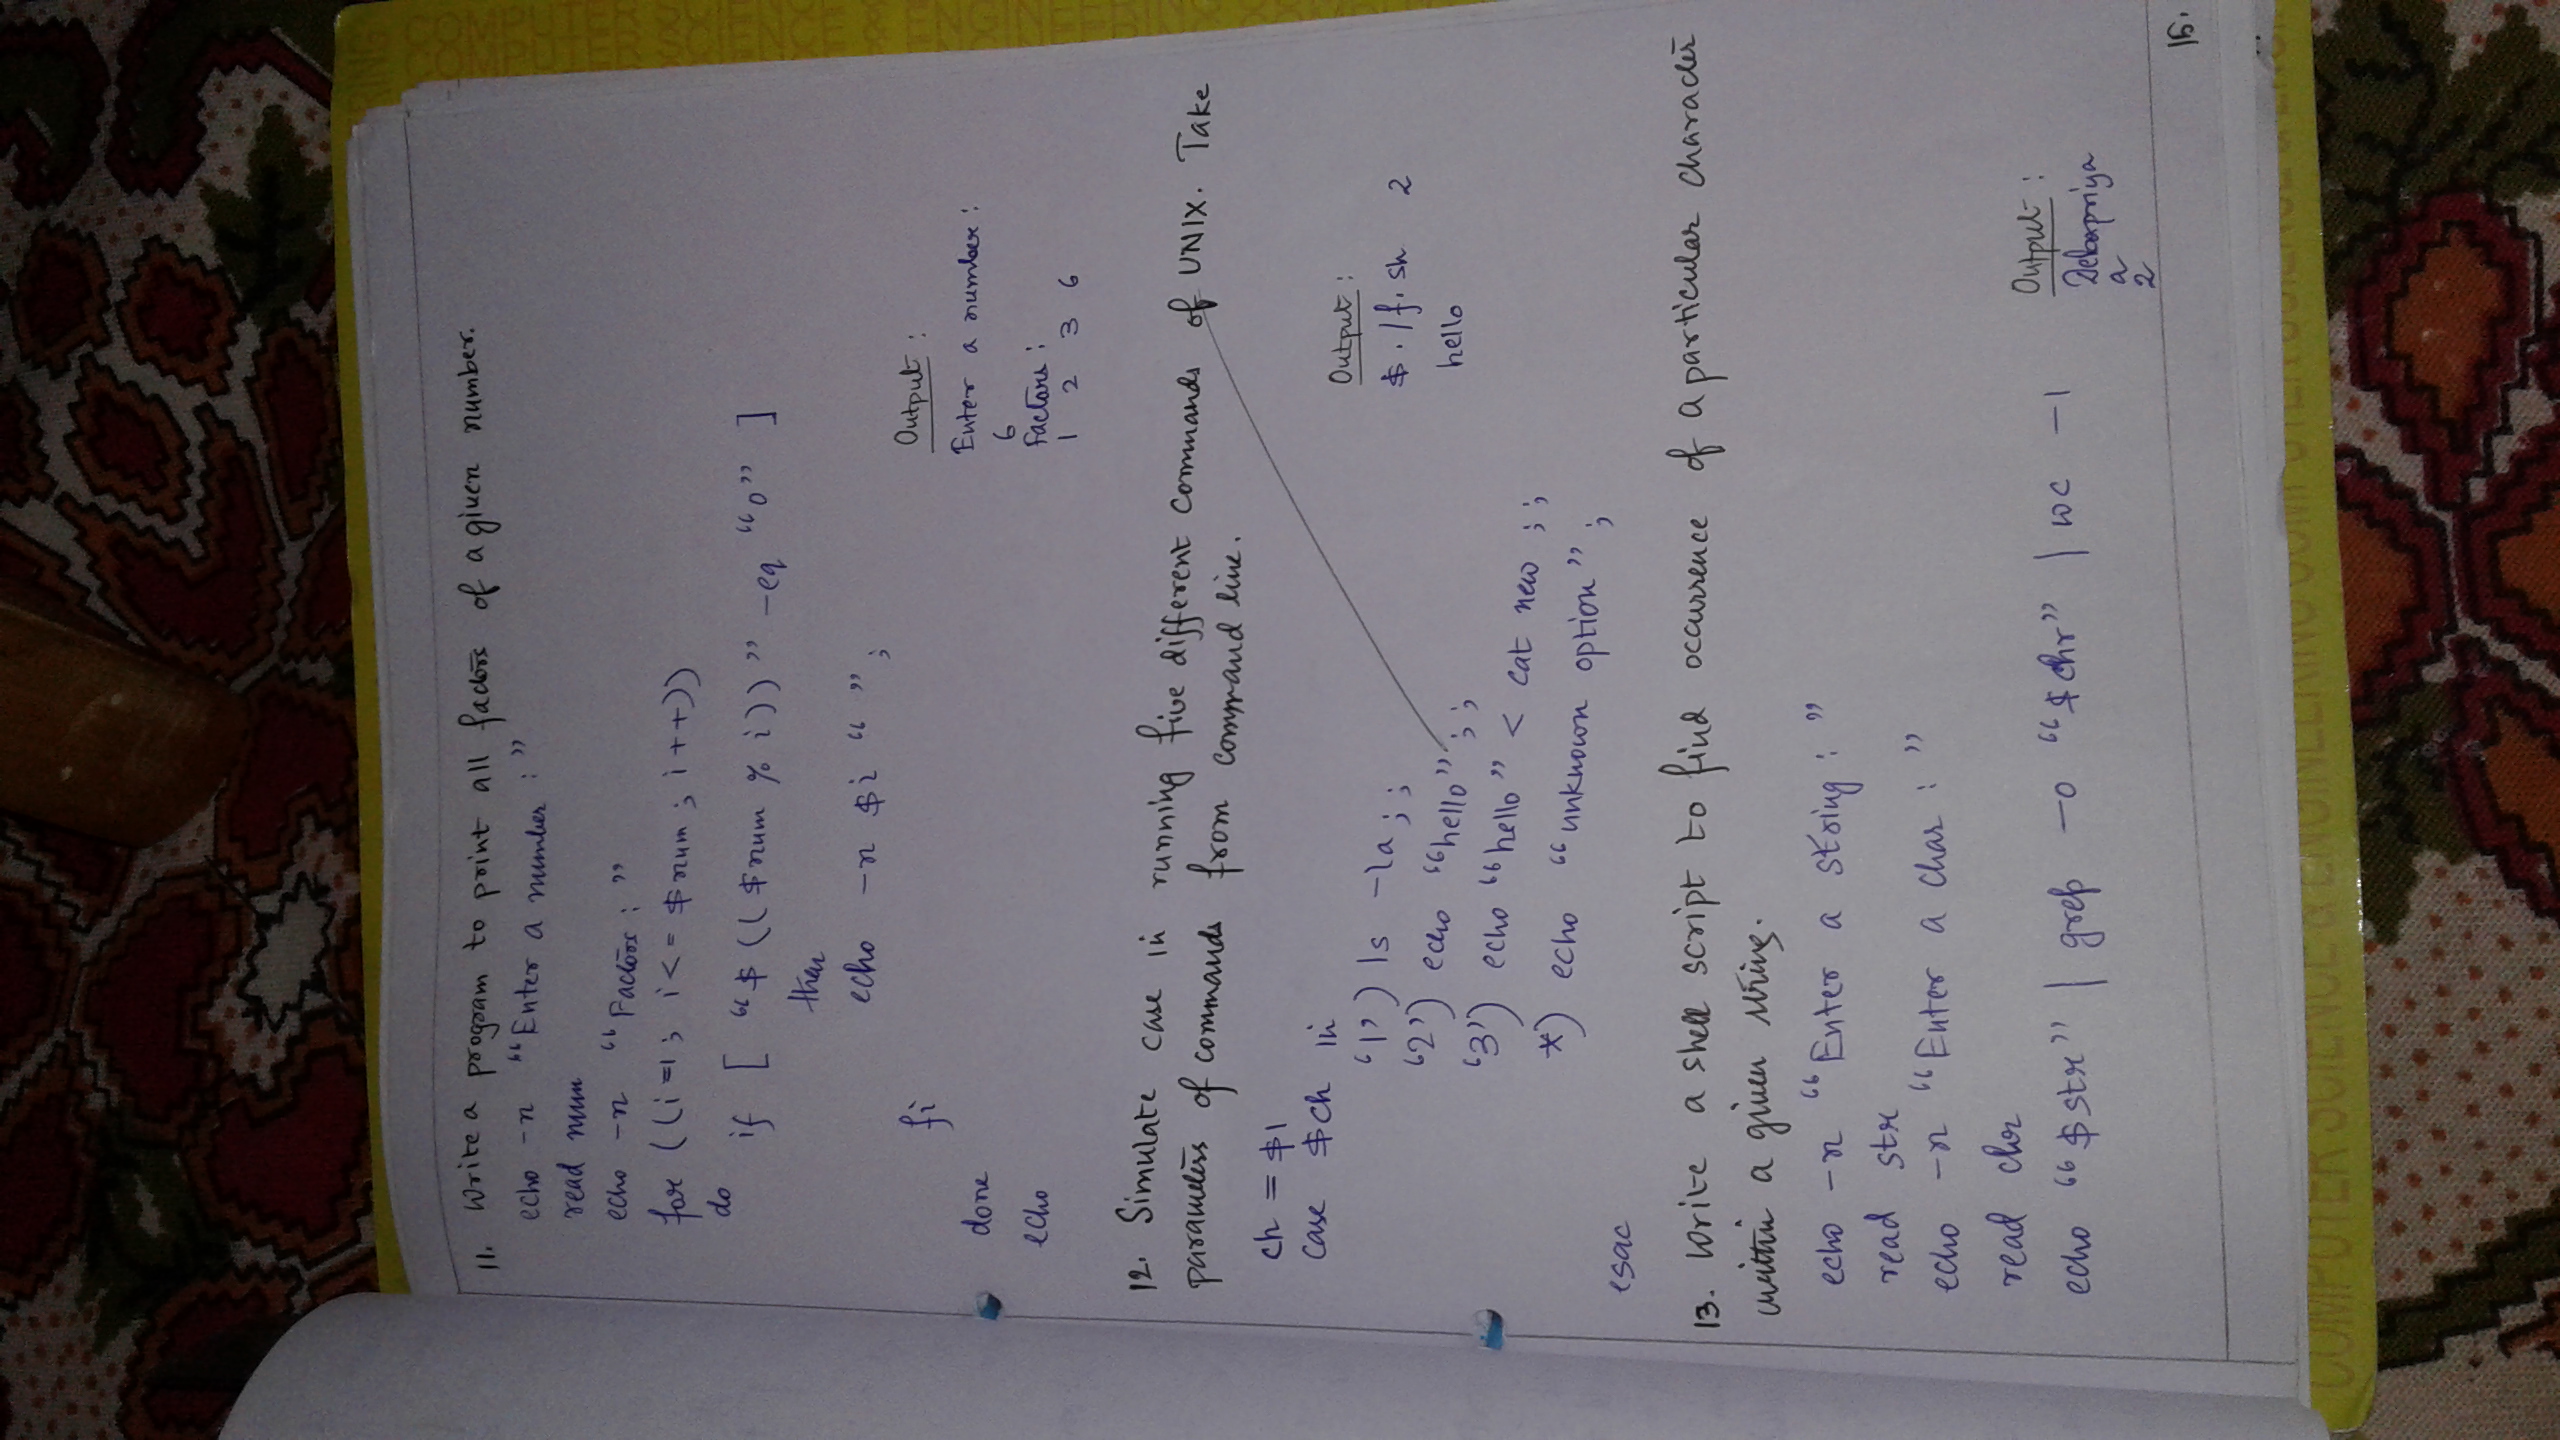 11. Write a program to print all factors of a given number.
echo -n "Enter a number : "
read num
echo -n "Factors : "
for ((i=1; i<= $num; i++))
do
if [ "$(($num % i))" -eq "0" ]
then
echo -n $i " ";
fi
done
echo
Output :
Enter a number :
6
Factors :
1 2 3 6
12. Simulate case in running five different commands of UNIX. Take
parameters of commands from command line.
ch = $1
case $ch in
'1') ls -la;;
'2') echo "hello";;
'3') echo "hello" < cat new ;;
*) echo "unknown option" ;
esac
Output :
$ ./f.sh 2
hello
13. Write a shell script to find occurrence of a particular character
within a given string.
echo -n "Enter a string : "
read str
echo -n "Enter a char : "
read chr
echo "$str" | grep -o "$chr" | wc -l
Output :
Debapriya
a
2
15.
COMPUTER SCIENCE & ENGINEERING COMPUTER SCIENCE & ENGI